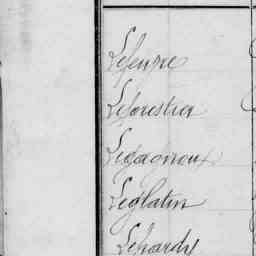 Lefeuvre
Leforestier
Legagnoux
Léglatin
Lehardy